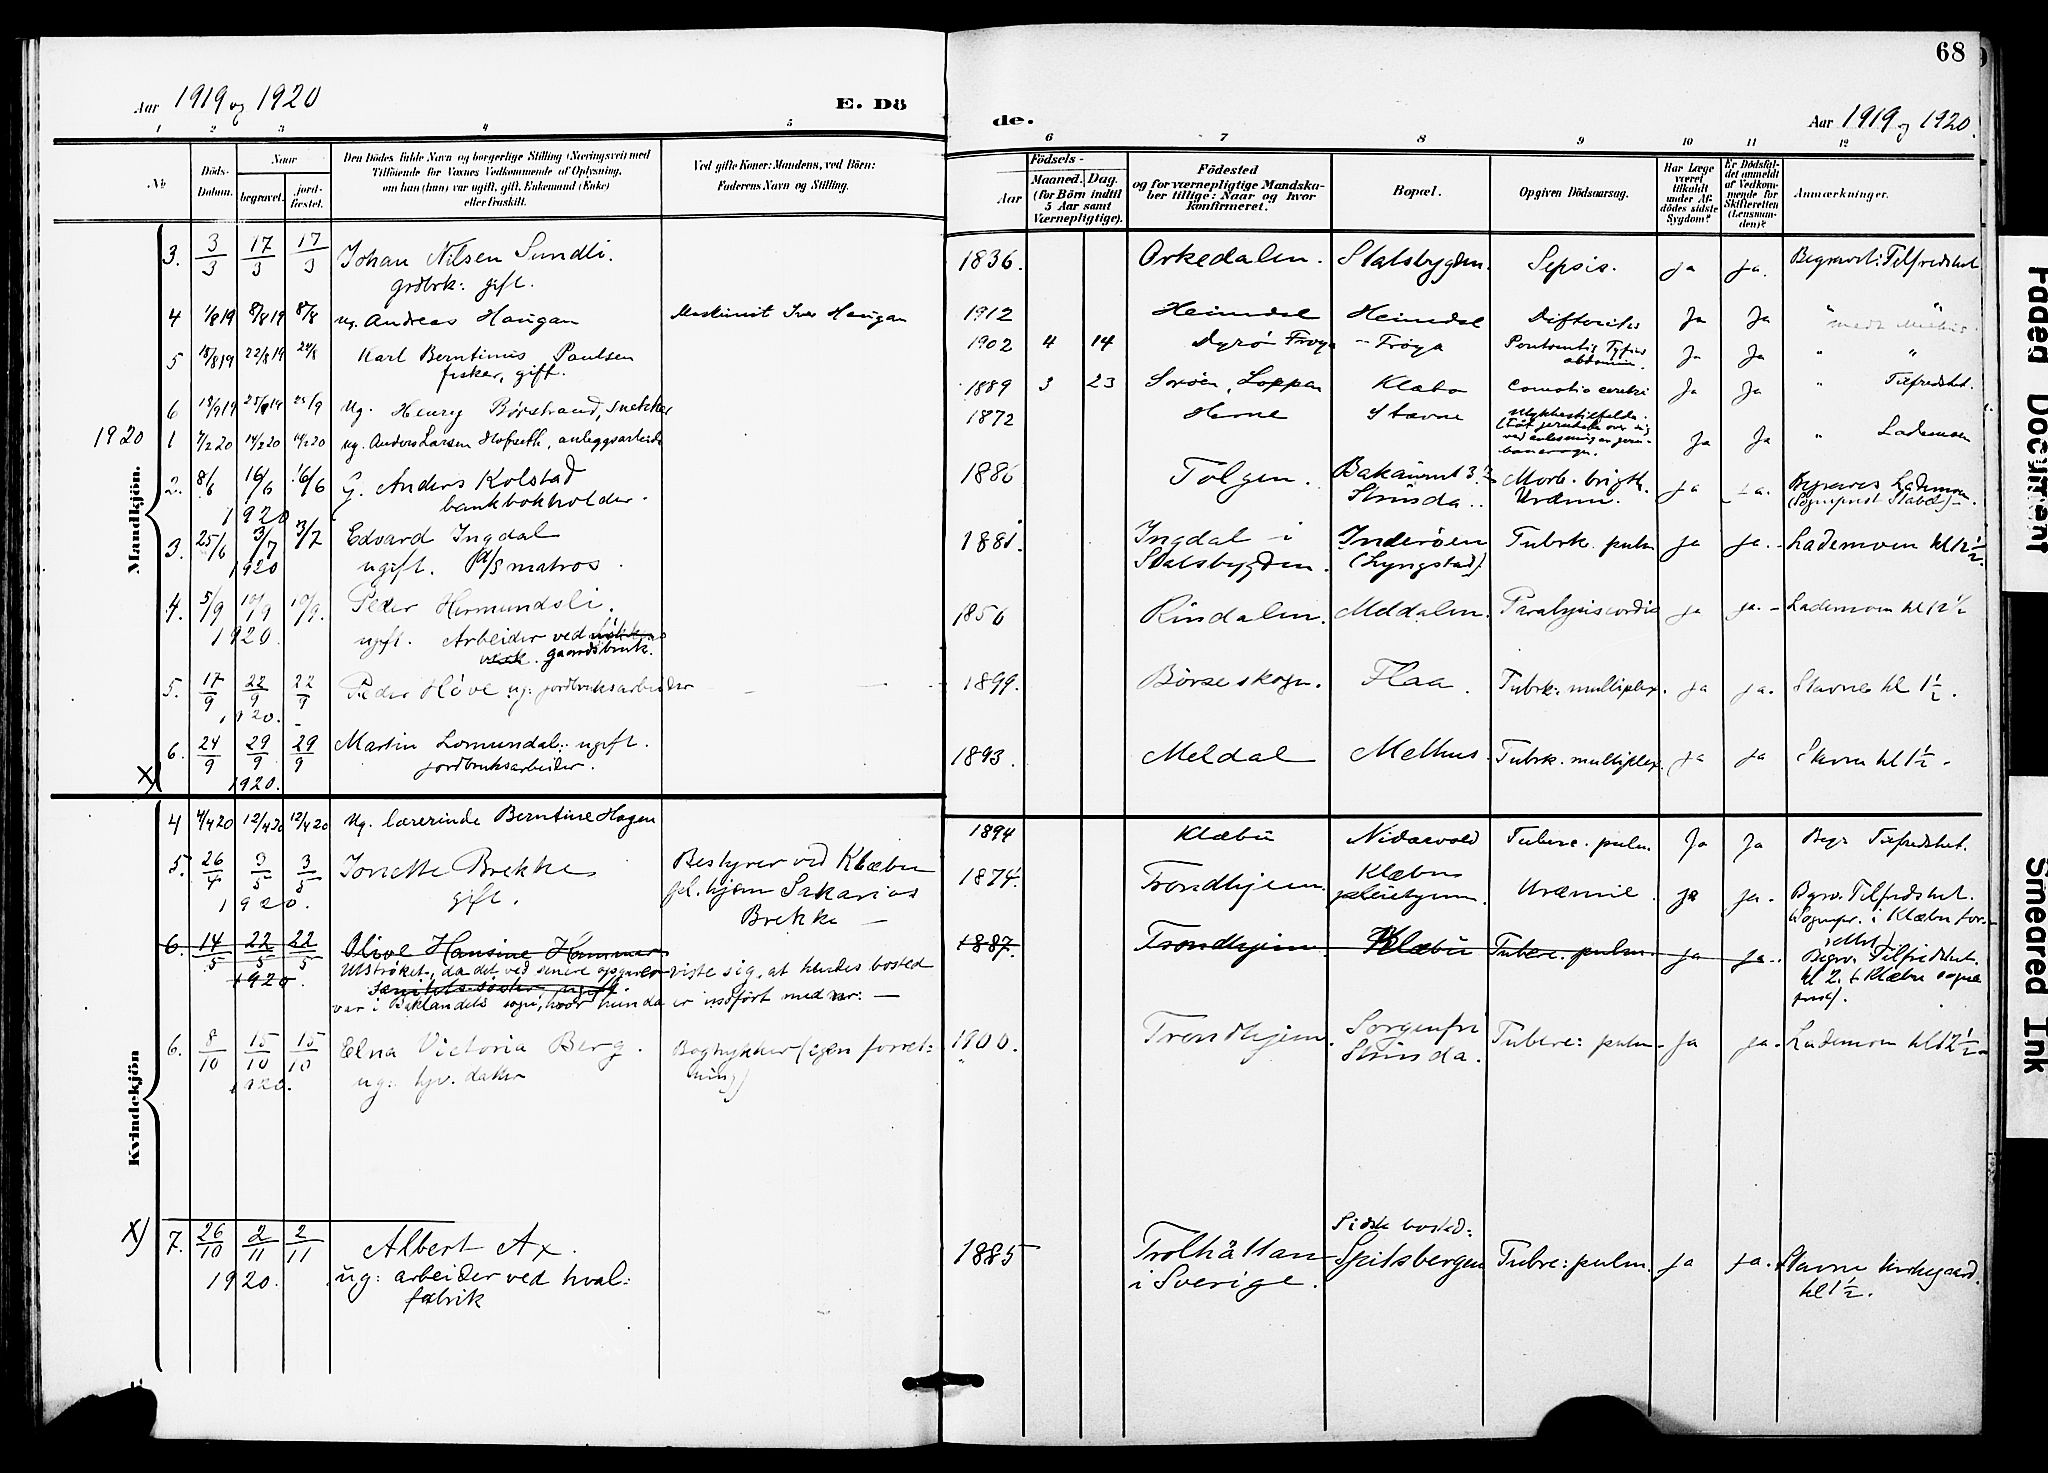 68
Aar 1919 og 1920
E. Dö
de.
Aar 1919 og 1920.
1 2 3 4 5 6 7 8 9 10 11 12
No
Döds-
Datum.
Naar
begravet.
jord-
fæstet.
Den Dödes fulde Navn og borgerlige Stilling (Næringsvei) med
Tilföiende for Voxnes Vedkommende af Oplysning,
om han (hun) var ugift, gift, Enkemand (Enke)
eller fraskilt.
Ved gifte Koner: Mandens, ved Börn:
Faderens Navn og Stilling.
Födsels-
Aar
Maaned. Dag.
(for Börn indtil
5 Aar samt
Værnepligtige).
Födested
og for værnepligtige Mandska-
ber tillige: Naar og hvor
konfirmeret.
Bopæl.
Opgiven Dödsaarsag.
Har Læge
været
tilkaldt
under Af-
dödes sidste
Sygdom?
Er Dödsfal-
det anmeldt
af Vedkom-
mende for
Skifteretten
(Lensman-
den)?
Anmærkninger.
Mandkjön.
3. 3/3 17/3 17/3 Johan Nilsen Sundli. 1836. Orkedalen. Statsbygden. Sepsis. ja ja. Begravet: Tilfredshet
grdbrk: gift.
4 1/8 19 8/8 19 8/8 ug. Andreas Haugan Maskinist Iver Haugan 1912 Heimdal Heimdal Difteritis Ja Ja "
5 18/8 19 22/8 19 22/8 Karl Berntinus Paulsen 1902 4 14 Dyrøn Frøya Frøya Ja Ja " "
fisker, gift. abdomin.
6 18/9 19 25/9 19 25/9 ug. Henry Börstrand, snekker 1889 3 23 Sorøen, Loppen Klæbo Comotio cerebri Ja Ja " Tilfredshet.
1920 1 7/2 20 14/2 20 14/2 20 ug. Anders Larsen Hofseth, anleggsarbeider 1872 Hevne Stavne Ulykkestilfelde. Ja Ja " Lademoen
2. 8/6 16/6 16/6 G. Anders Kolstad 1886 Tolgen. Bakaunet 3. Morb. brigth. ja ja. Begraves Lademoen
1920 bankbokholder. Strinda. Uræmi. (Sogneprest Stabel)
3. 25/6 3/7 3/7 Edvard Ingdal 1881. Ingdal i Inderøen Tubrk. pulm ja ja. - Lademoen kl 12 1/2
1920 ugift. D/S matros. Statsbygden. (Lyngstad).
4. 5/9 10/9 10/9. Peder Hermundsli. 1856 Rindalen. Meldalen. Paralysis cordis ja ja. - Lademoen kl 12 1/2
1920. ugft. Arbeider ved
gaardsbruk.
5. 17/9 22/9 22/9 Peder Høve ug: jordbruksarbeider 1899. Börseskogn. Flaa. Tubrk: multiplex. ja ja. Stavne kl 1 1/2.
1920.
6. 24/9 29/9 29/9 Martin Lomundal: ugift. 1893. Meldal Melhus. Tubrk. multiplex. ja ja Stavne kl 1 1/2 -
X) 1920. jordbruksarbeider.
Kvindekjön
4 4/4 20 12/4 20 12/4 20 Ug. lærerinde Berntine Hagen 1894 Klæbu Nidarvold Tuberc. pulm. Ja Ja Begr Tilfredshet.
5. 26/4 3/5 3/5 Jonette Brekke Bestyrer ved Klæbu 1874. Trondhjem. Klæbu Uræmie. ja ja. Begrv. Tilfredshet.
1920. gift. pl. hjem Sakarias pleiehjem. (Sognepr. i Klæbu for-
Brekke - rettet)
6. 14/5 22/5 22/5 Olive Hansine Hammer 1887. Trondhjem Klæbu Tuberc. pulm. ja ja. Begrv. Tilfredshet.
1920. Utstrøket, da det ved senere opgaver viste sig, at hendes bosted kl 2. (Klæbu sogne
ugift prest).
var i Baklandets sogn, hvor hun da er indført med nr: -
6. 8/10 15/10 15/10 Elna Victoria Berg. Bogtrykker (egen forret- 1900. Trondhjem. Sorgenfri Tuberc: pulm. ja ja. Lademoen kl 12 1/2
1920. ug: hjv. datter ning) Strinda.
X) 7. 26/10 2/11 2/11 Albert Ax. 1885 Trolhättan Sidste bosted: Tubrc: pulm. ja ja. Stavne kirkegaard.
1920. ug: arbeider ved hval: i Sverige. Spitsbergen kl 1 1/2.
fabrik
Faded Document
Smeared Ink